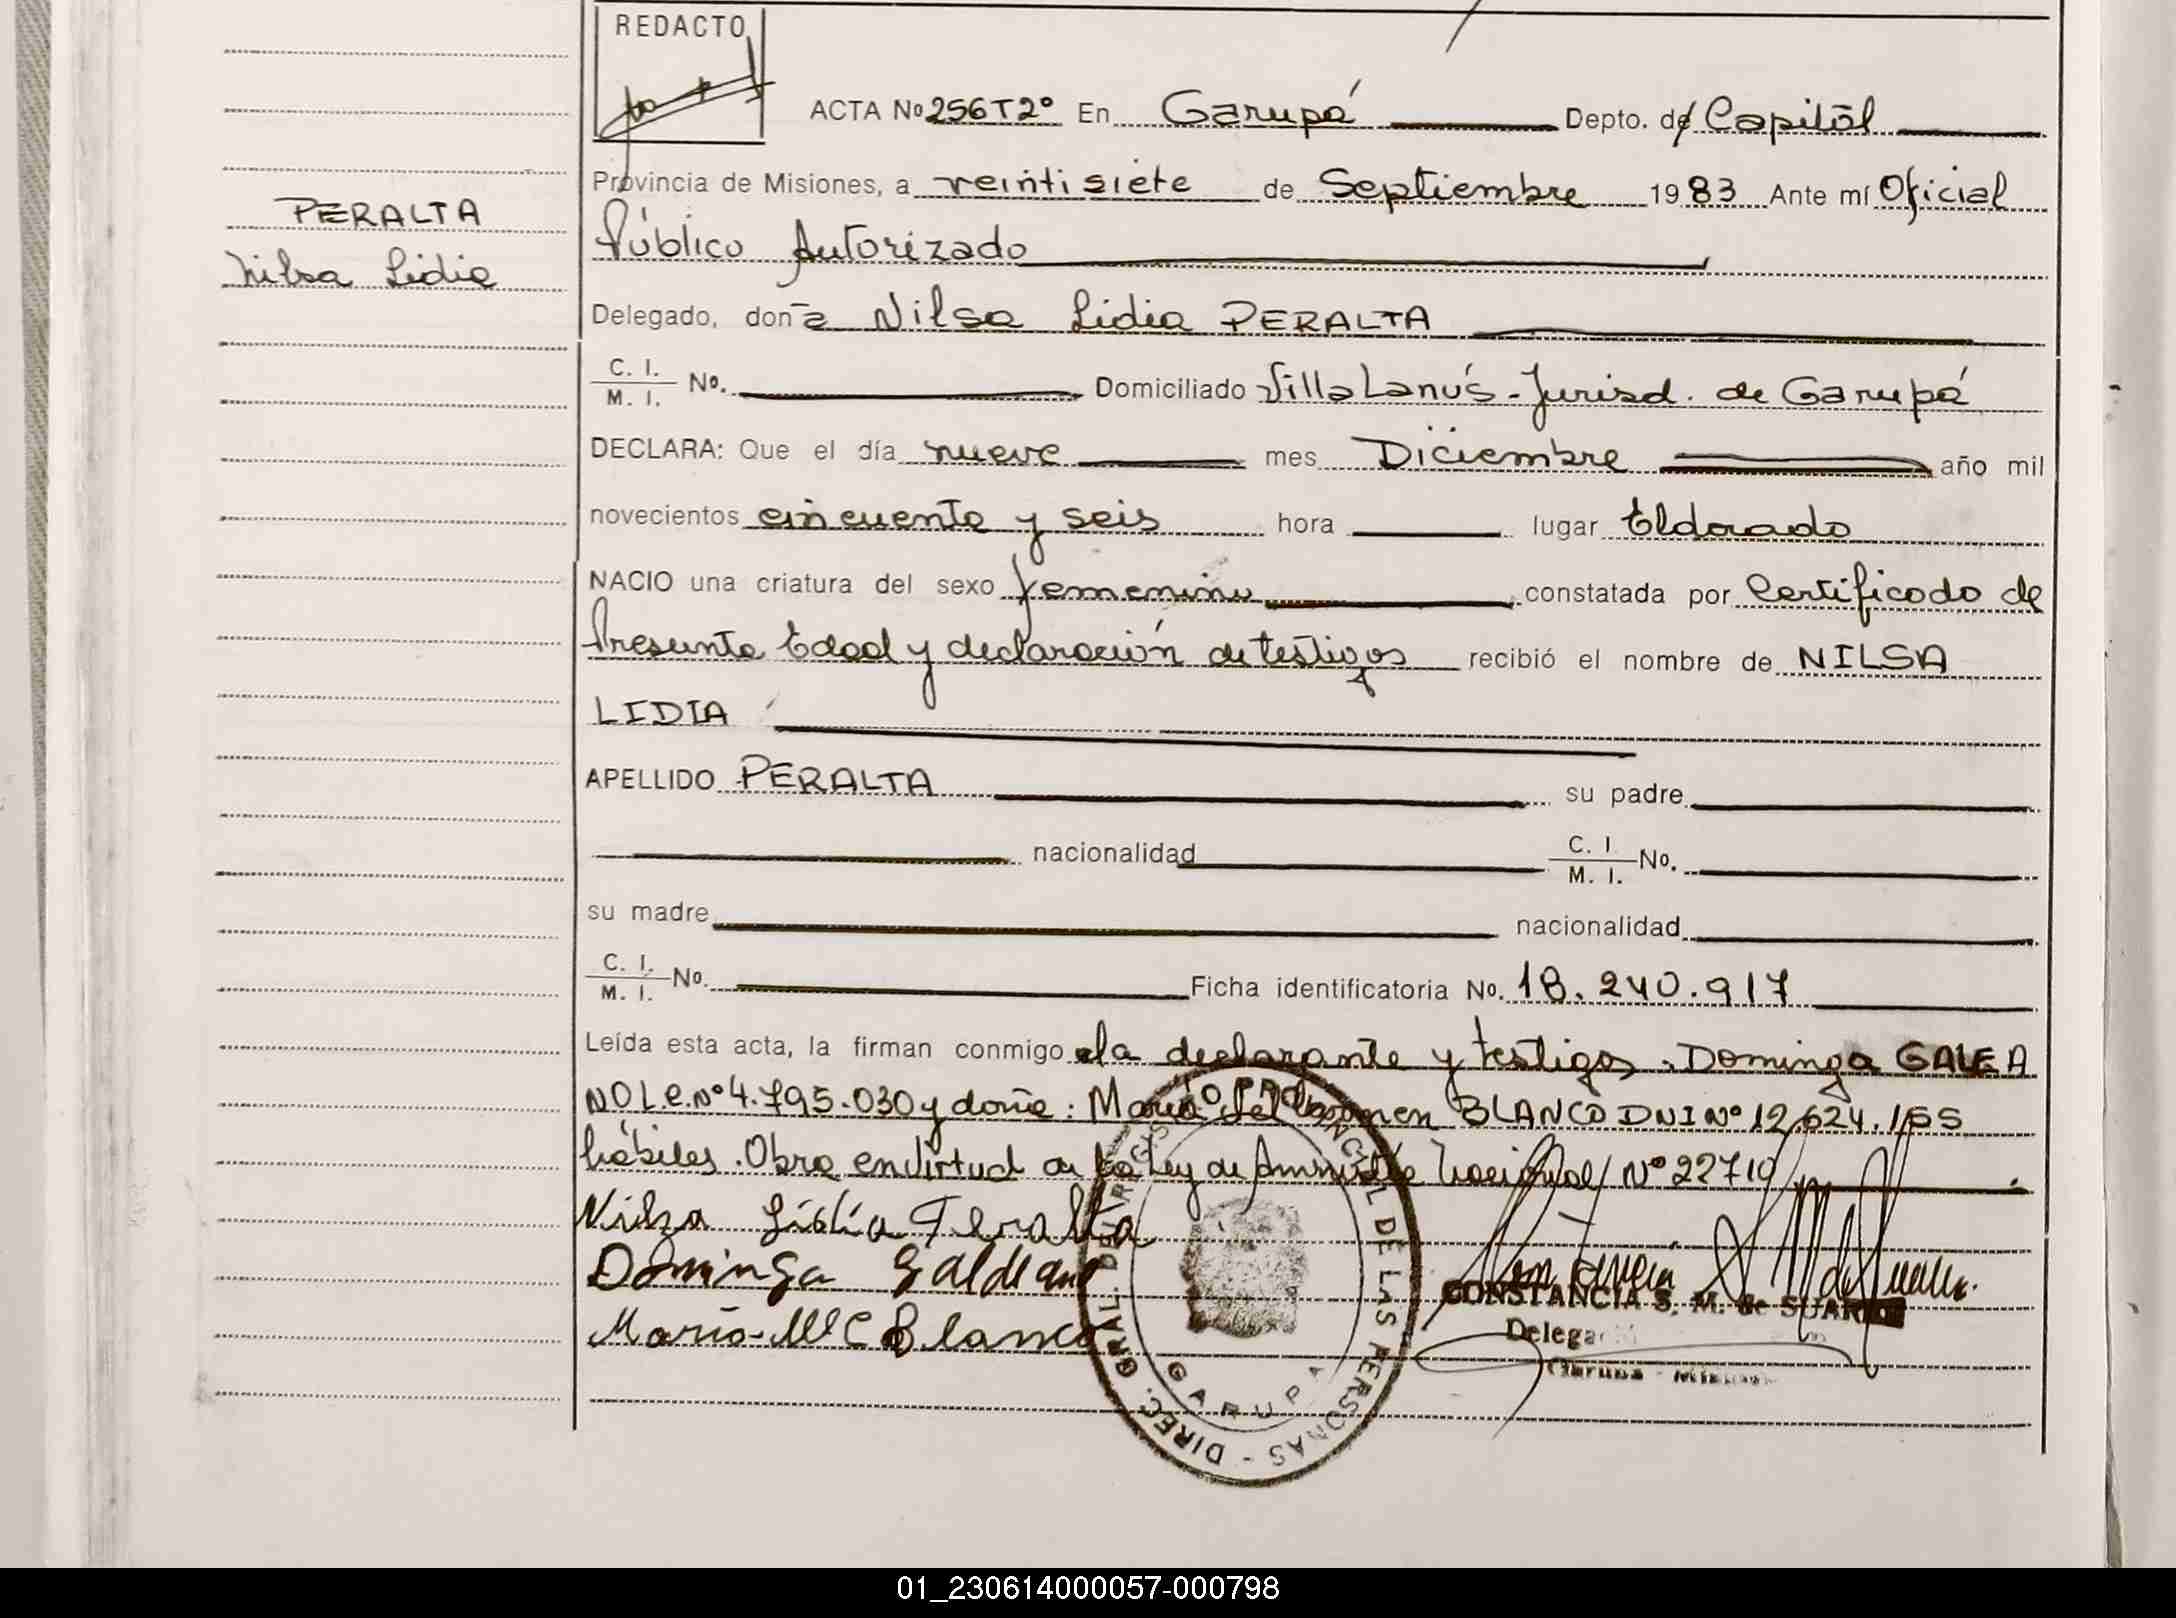 REDACTO
ACTA No 256 T 2° En Garupá Depto. de Capital
Provincia de Misiones, a veintisiete de Septiembre 1983 Ante mí Oficial
PERALTA
Público Autorizado
Nilsa Lidia
Delegado, doña Nilsa Lidia PERALTA
C. I.
M. I. No. Domiciliado Villa Lanús - Jurisd. de Garupá
DECLARA: Que el día nueve mes Diciembre año mil
novecientos cincuenta y seis hora lugar Eldorado
NACIO una criatura del sexo femenino constatada por Certificado de
Presunta Edad y declaración de testigos recibió el nombre de NILSA
LIDIA
APELLIDO PERALTA su padre
nacionalidad C. I.
M. I. No.
su madre nacionalidad
C. I.
M. I. No. Ficha identificatoria No. 18.240.917
Leída esta acta, la firman conmigo la declarante y testigos. Dominga GALEA
NO L.C. N° 4.795.030 y doña: María del Carmen BLANCO DNI N° 12.624.155
hábiles. Obra en virtud de la Ley de Amnistía Nacional N° 22710
Nilsa Lidia Peralta
Dominga Galeano
María del C Blanco
CONSTANCIA S. M. de SUAREZ
Delega
Garupá - Misiones
DIREC. GRAL. DEL REGISTRO PROVINCIAL DE LAS PERSONAS
GARUPA
01_230614000057-000798